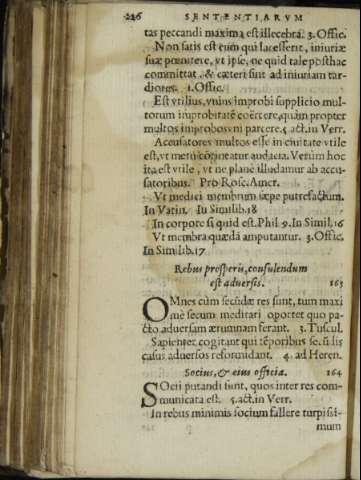 226 SENTENTIARVM
tas peccandi maxima est illecebra. 3. Offic.
Non satis est eum qui lacesserit, iniuriæ
suæ pœnitere, vt ipse, ne quid tale posthac
committat, & cæteri sint ad iniuriam tar-
diores. 1. Offic.
Est vtilius, vnius improbi supplicio mul-
torum improbitatē coërcere, quàm propter
multos improbos vni parcere. 5. act. in Verr.
Accusatores multos esse in ciuitate vtile
est, vt metu cōtineatur audacia. Verùm hoc
ita est vtile, vt ne planè illudamur ab accu-
satoribus. Pro Rosc. Amer.
Vt medici membrum sæpe putrefactum.
In Vatin. In Similib. 18
In corpore si quid est. Phil. 9. In Simil. 16
Vt membra quædā amputantur. 3. Offic.
In Similib. 17
Rebus prosperis, consulendum
est aduersis. 163
OMnes cùm secūdæ res sunt, tum maxi
mè secum meditari oportet quo pa-
cto aduersam ærumnam ferant. 3. Tuscul.
Sapienter cogitant qui tēporibus secūdis
casus aduersos reformidant. 4. ad Heren.
Socius, & eius officia. 164
SOcii putandi sunt, quos inter res com-
municata est. 5. act. in Verr.
In rebus minimis socium fallere turpissi-
mum